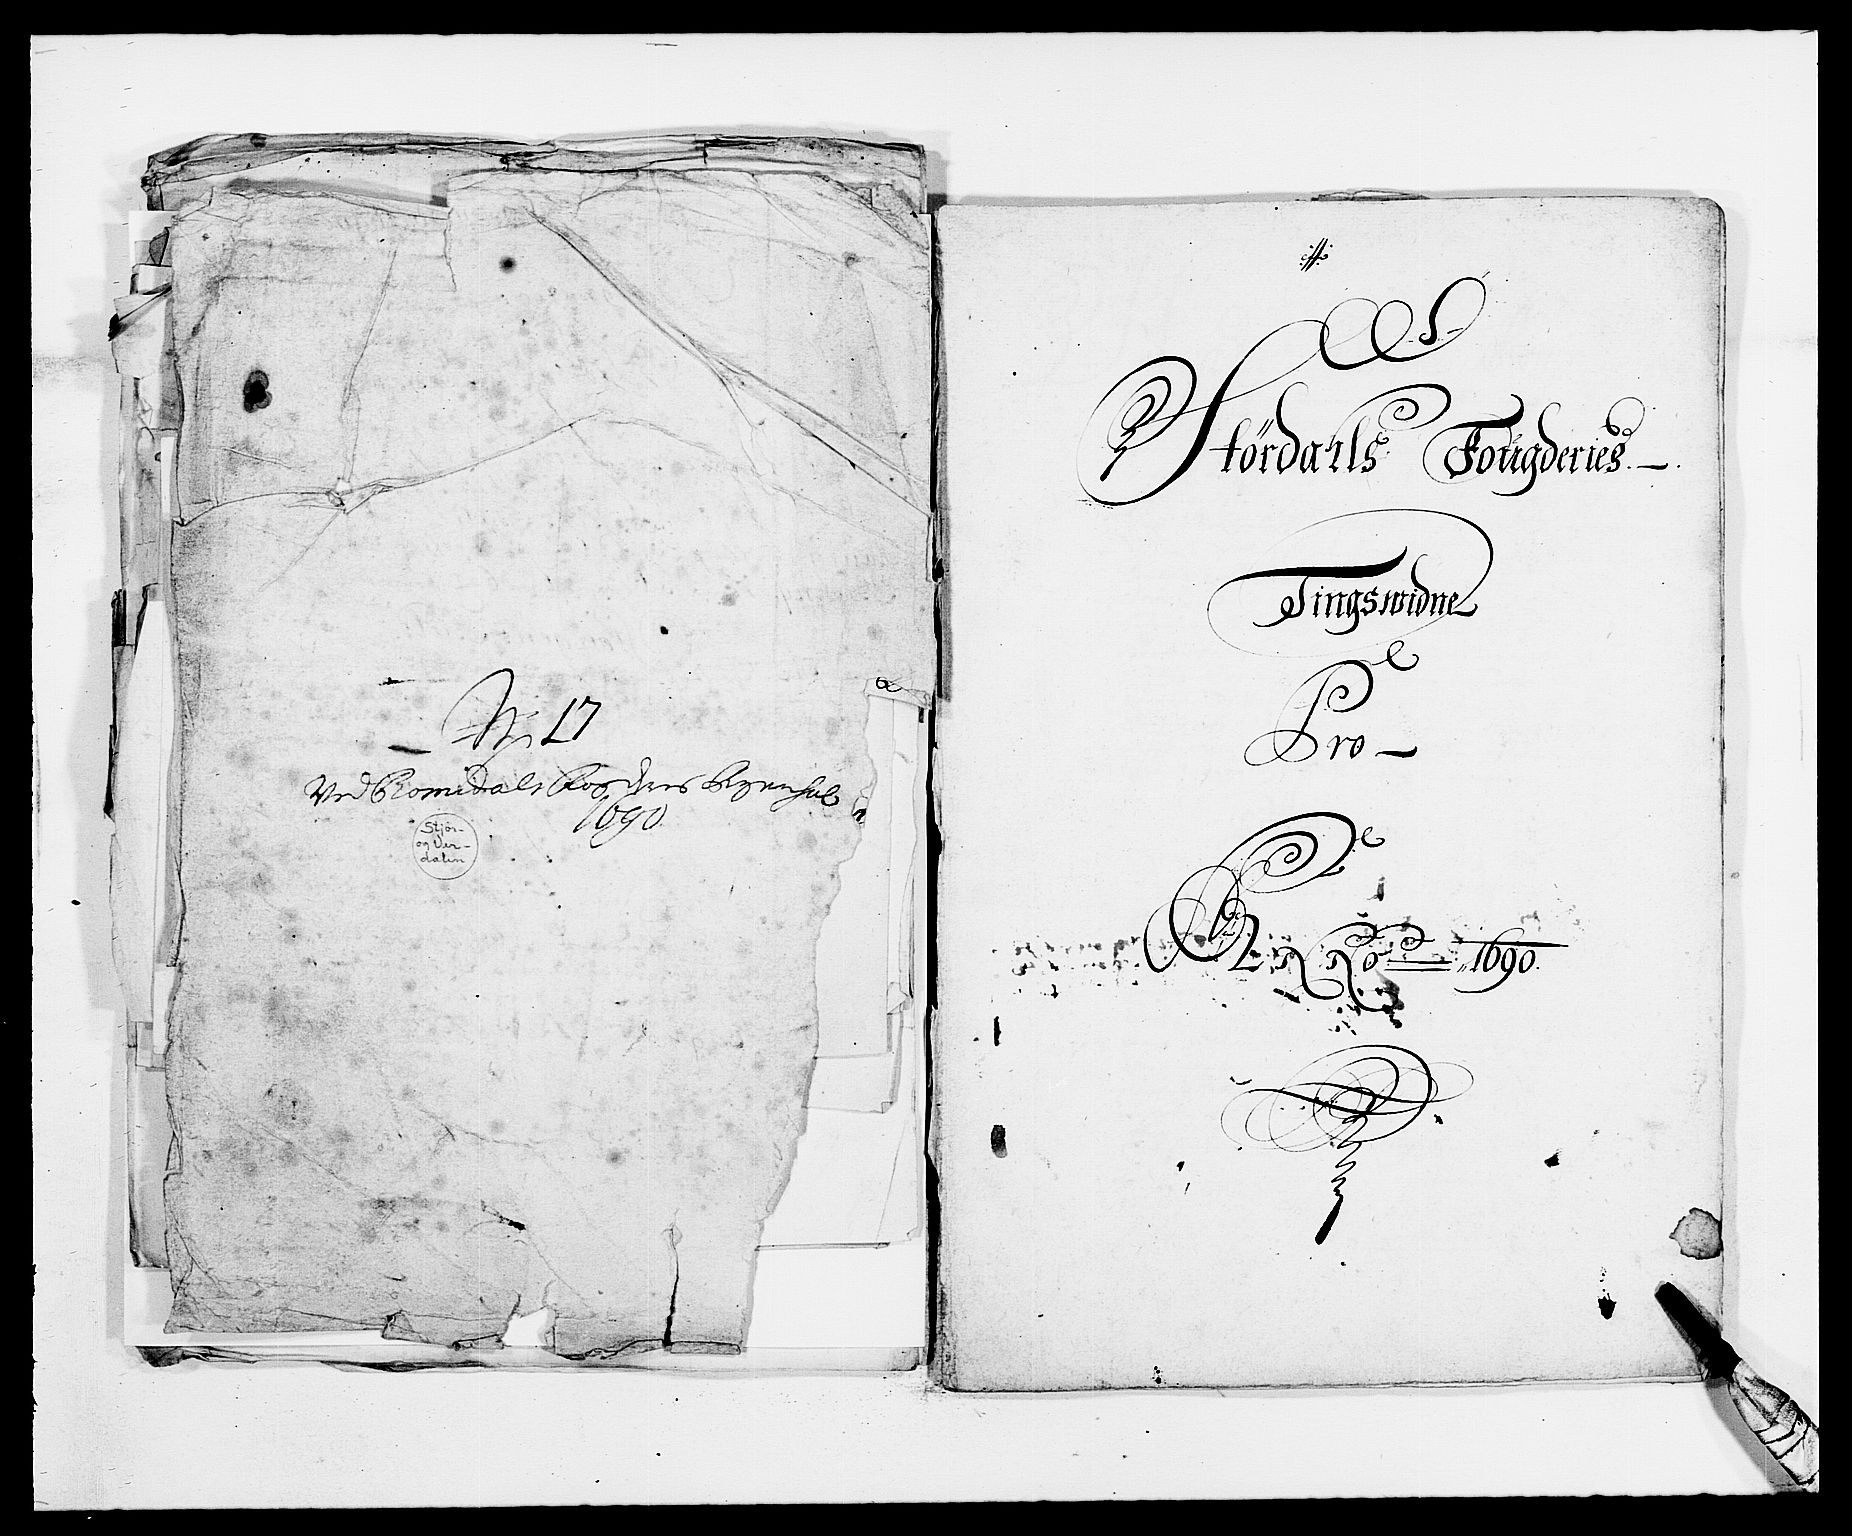 No 17
Ved Romsdals Fogderis Regenskab
1690
Stjør-
og Ver-
dalen
Størdalls Fougderies
Tingswidne
Pro
ANNO 1690.